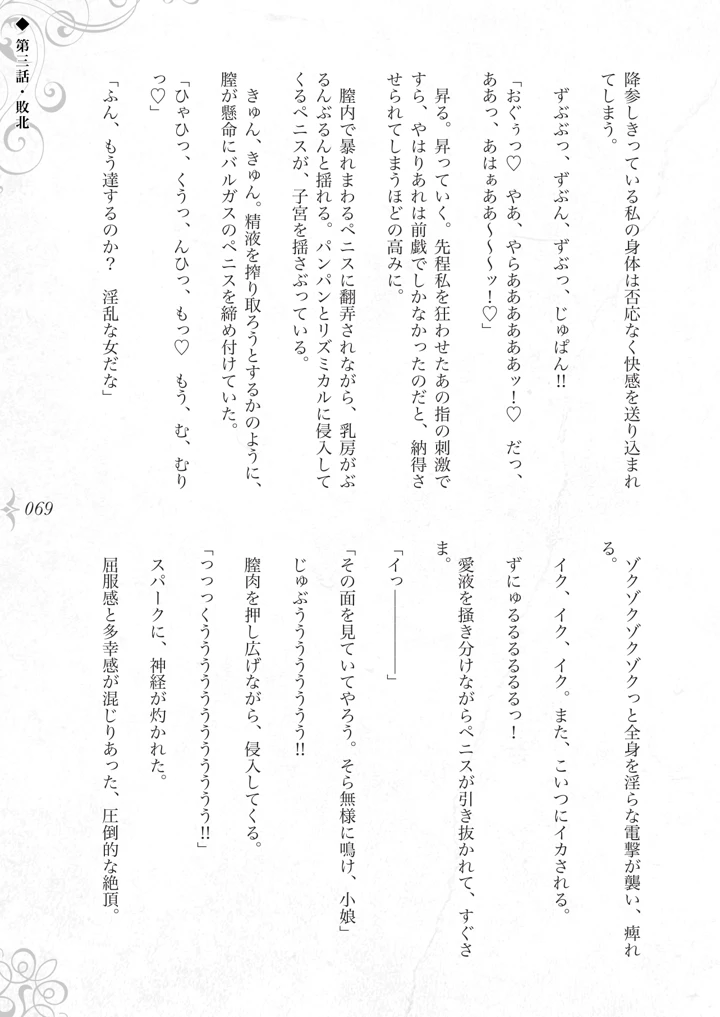 ◆ 第三話・敗北
降参しきっている私の身体は否応なく快感を送り込まれ
てしまう。
ずぶぶっ、ずぶん、ずぶっ、じゅぱん!!
「おぐぅっ♡　やあ、やらああああああッ！♡　だっ、
ああっ、あはぁああ〜〜〜ッ！♡」
昇る。昇っていく。先程私を狂わせたあの指の刺激で
すら、やはりあれは前戯でしかなかったのだと、納得さ
せられてしまうほどの高みに。
膣内で暴れまわるペニスに翻弄されながら、乳房がぶ
るんぶるんと揺れる。パンパンとリズミカルに侵入して
くるペニスが、子宮を揺さぶっている。
きゅん、きゅん。精液を搾り取ろうとするかのように、
膣が懸命にバルガスのペニスを締め付けていた。
「ひゃひっ、くうっ、んひっ、もっ♡　もう、む、むり
っ♡」
「ふん、もう達するのか？　淫乱な女だな」
ゾクゾクゾクゾクっと全身を淫らな電撃が襲い、痺れ
る。
イク、イク、イク。また、こいつにイカされる。
ずにゅるるるるるるっ！
愛液を掻き分けながらペニスが引き抜かれて、すぐさ
ま。
「イっ――――――」
「その面を見ていてやろう。そら無様に鳴け、小娘」
じゅぶううううううう!!
膣肉を押し広げながら、侵入してくる。
「っっっくうううううううううううう!!」
スパークに、神経が灼かれた。
屈服感と多幸感が混じりあった、圧倒的な絶頂。
069